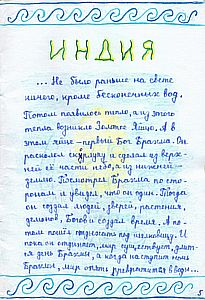 ИНДИЯ
...Не было раньше на свете
ничего, кроме бесконечных вод.
Потом появилось тепло, а из этого
тепла возникло Золотое Яйцо. А в
этом яйце - первый Бог Брахма. Он
расколол скорлупу и сделал из верх-
ней её части небо, а из нижней -
землю. Посмотрел Брахма по сто-
ронам и увидел, что он один. Тогда
он создал людей, зверей, растения,
демонов, Богов и создал время. А по-
том пошёл отдыхать под шелковицу. И
пока он отдыхает, мир существует, длит-
ся день Брахмы, а когда наступит ночь
Брахмы, мир опять превратится в воды...
5